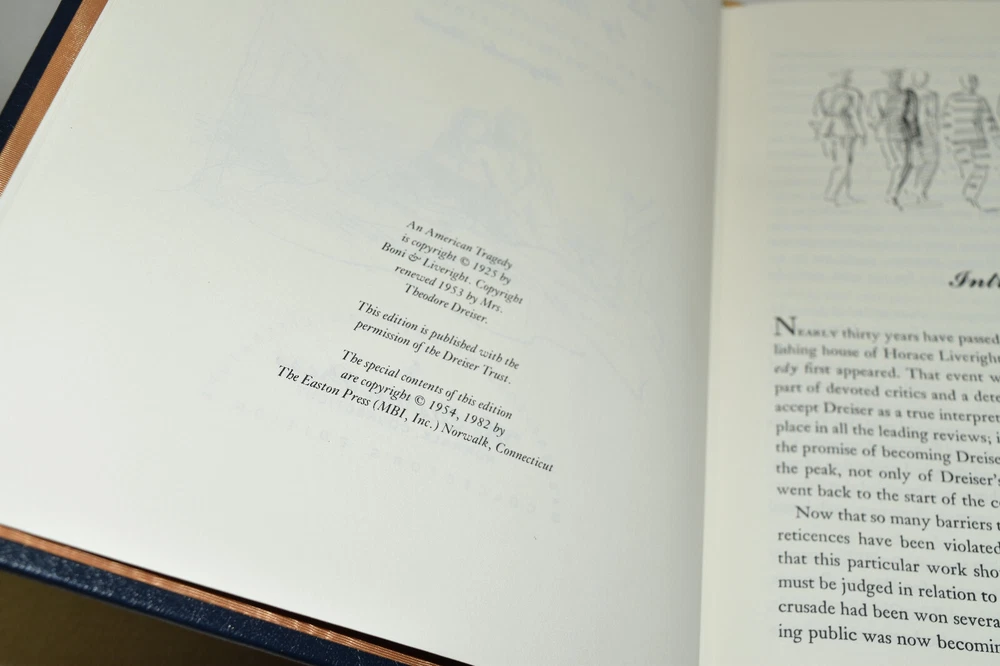 An American Tragedy
is copyright © 1925 by
Boni & Liveright. Copyright
renewed 1953 by Mrs.
Theodore Dreiser.
This edition is published with the
permission of the Dreiser Trust.
The special contents of this edition
are copyright © 1954, 1982 by
The Easton Press (MBI, Inc.) Norwalk, Connecticut
NEARLY thirty years have passed
lishing house of Horace Liveright
edy first appeared. That event w
part of devoted critics and a dete
accept Dreiser as a true interpret
place in all the leading reviews; i
the promise of becoming Dreise
the peak, not only of Dreiser's
went back to the start of the c
Now that so many barriers t
reticences have been violated
that this particular work sho
must be judged in relation to
crusade had been won severa
ing public was now becomin